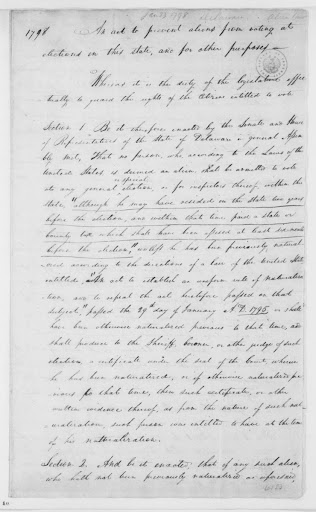 1798
An act to prevent aliens from voting at
elections in this state, and for other purposes
Whereas it is the duty of the Legislature effec
tually to guard the rights of the Citizens entitled to vote
Section 1. Be it therefore enacted by the Senate and House
of Representatives of the State of Delaware in general Assem
bly met, That no person, who according to the Laws of the
United States is deemed an alien shall be admitted to vote
special
at any general election, or for inspectors thereof, within the
state, "although he may have resided in the state two years
before the election, and within that time paid a state or
county tax which shall have been assessed at least six months
before the election," unless he has been previously natural
ized according to the directions of a law of the United States
entitled "An act to establish an uniform rule of naturaliza
tion, and to repeal the act heretofore passed on that
subject," passed the 29th day of January A.D. 1795, or shall
have been otherwise naturalized previous to that time, and
shall produce to the Sheriff, Coroner, or other judge of such
election a certificate under the seal of the Court, wherein
he has been naturalized, or if otherwise naturalized pre
vious to that time, then such certificate, or other
written evidence thereof, as from the nature of such nat
uralization, such person was entitled to have at the time
of his naturalization.
Section 2. And be it enacted, that if any such alien,
who hath not been previously naturalized as aforesaid